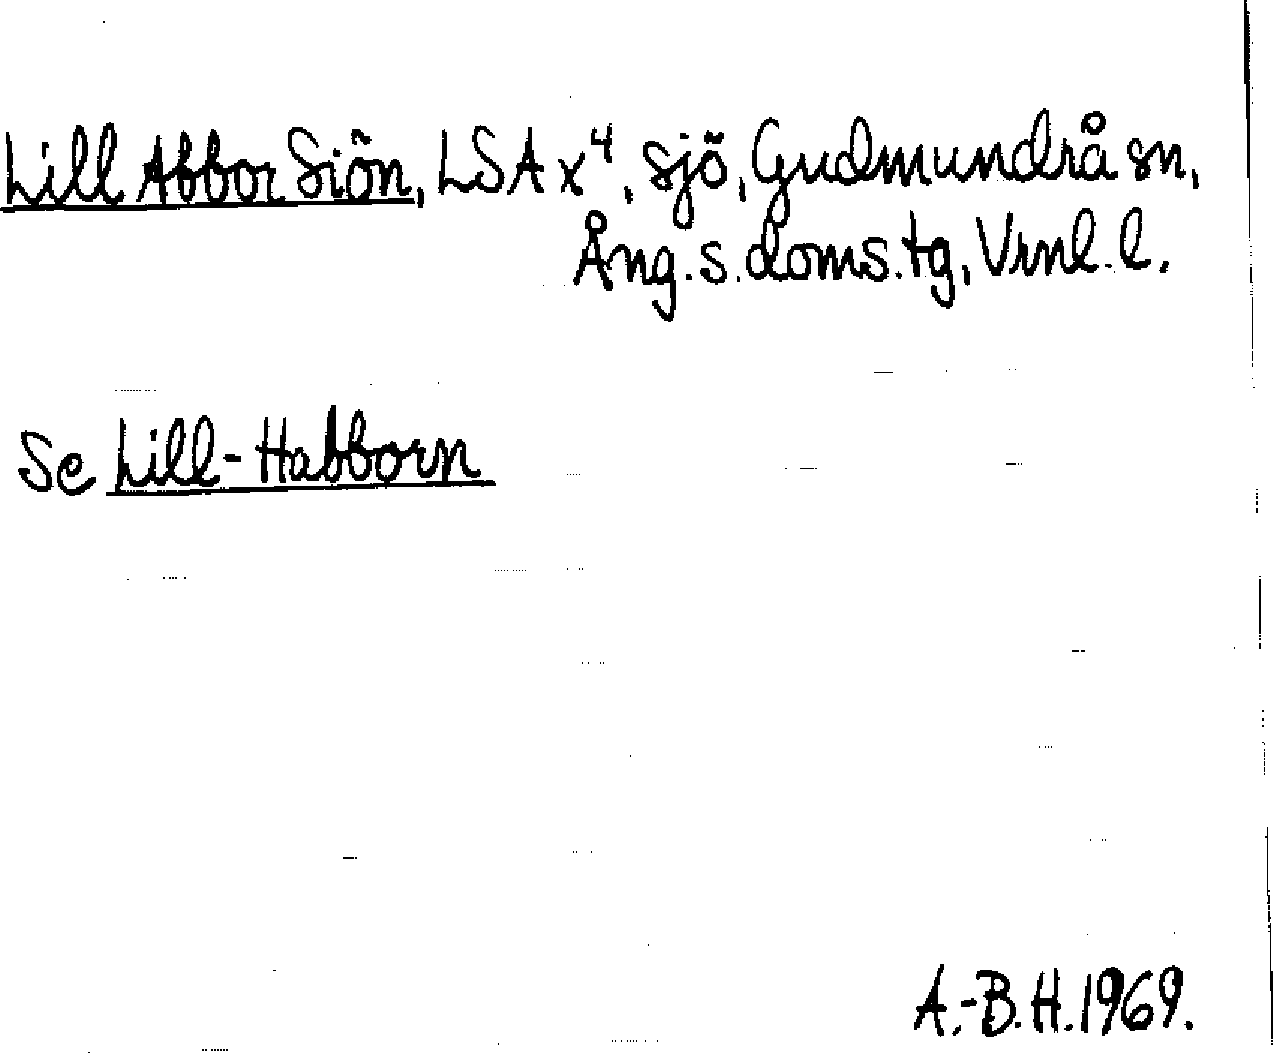 Lill Abbor Siön, LSA x⁴, sjö, Gudmundrå sn,
Ång. s. doms. tg, Vrnl. l.
Se Lill-Habborn
A.-B. H. 1969.